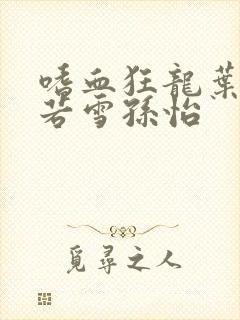 嗜血狂龍葉
若雪孫怡
覓尋之人